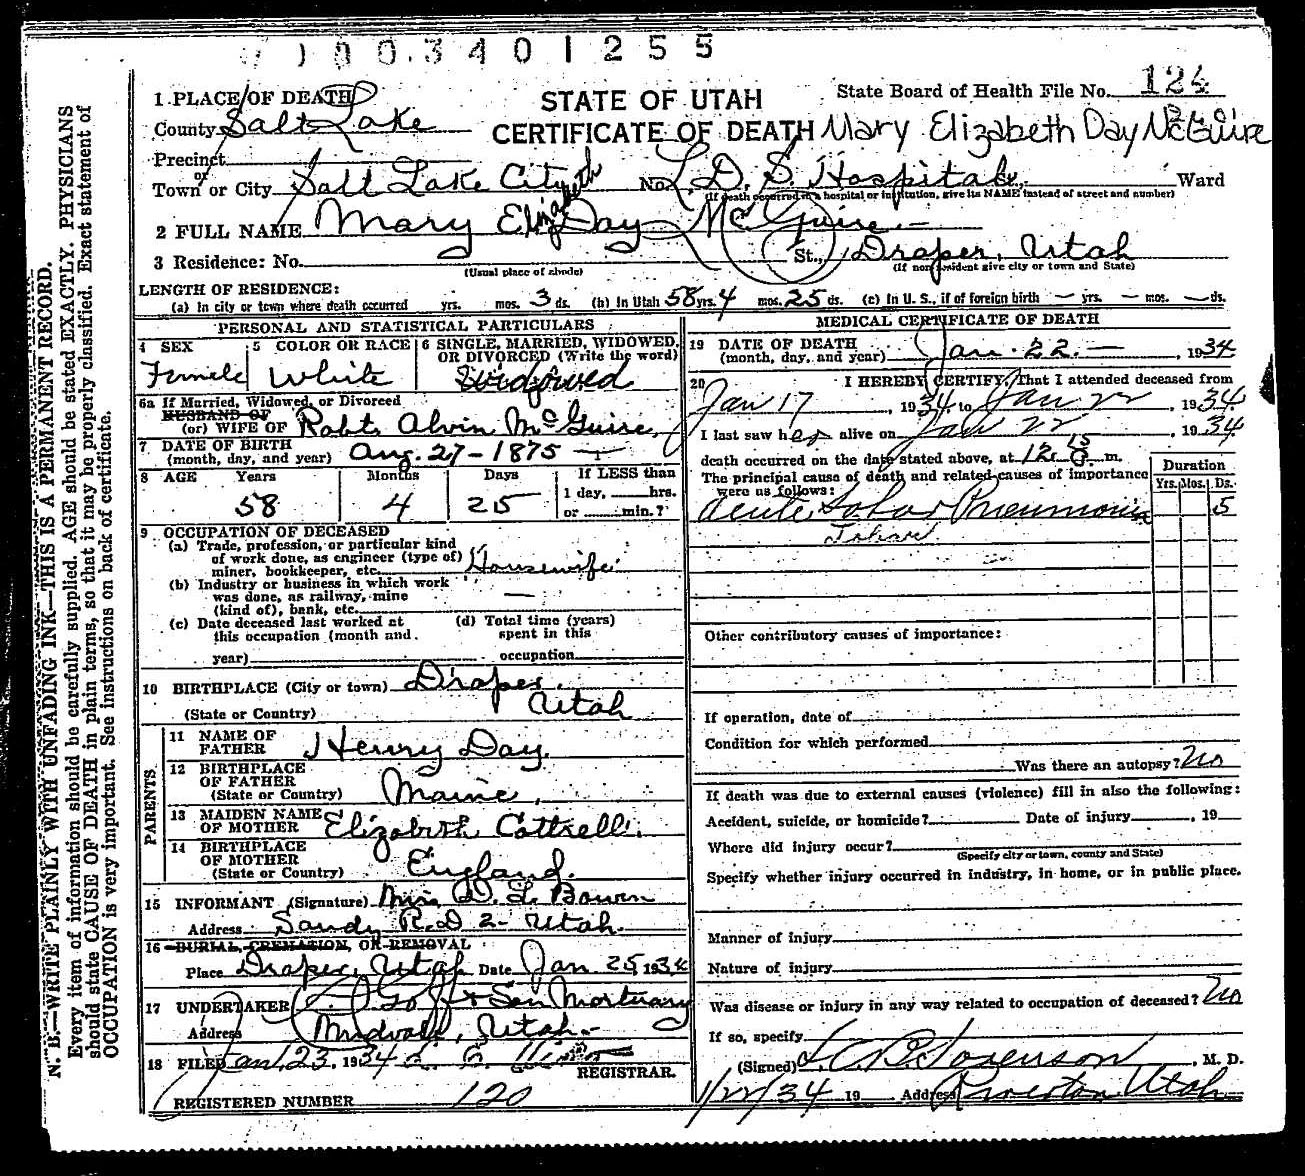 1003401255
1 PLACE OF DEATH
STATE OF UTAH
State Board of Health File No. 124
County Salt Lake
CERTIFICATE OF DEATH Mary Elizabeth Day McGuire
Precinct
or
Town or City Salt Lake City No. L.D.S. Hospital Ward
(If death occurred in a hospital or institution, give its NAME instead of street and number)
2 FULL NAME Mary Elizabeth Day McGuire
3 Residence: No. St., Draper, Utah
(Usual place of abode) (If nonresident give city or town and State)
LENGTH OF RESIDENCE:
(a) In city or town where death occurred yrs. mos. 3 ds. (b) In Utah 58 yrs. 4 mos. 25 ds. (c) In U. S., if of foreign birth — yrs. — mos. — ds.
PERSONAL AND STATISTICAL PARTICULARS
4 SEX
Female
5 COLOR OR RACE
White
6 SINGLE, MARRIED, WIDOWED, OR DIVORCED (Write the word)
Widowed
6a If Married, Widowed, or Divorced
HUSBAND OF
(or) WIFE OF Robt. Alvin McGuire
7 DATE OF BIRTH
(month, day, and year) Aug. 27 - 1875
8 AGE Years Months Days If LESS than
58 4 25 1 day, hrs.
or min.?
9 OCCUPATION OF DECEASED
(a) Trade, profession, or particular kind
of work done, as engineer (type of)
miner, bookkeeper, etc. Housewife
(b) Industry or business in which work
was done, as railway, mine
(kind of), bank, etc. —
(c) Date deceased last worked at
this occupation (month and
year)
(d) Total time (years)
spent in this
occupation
10 BIRTHPLACE (City or town) Draper,
(State or Country) Utah
PARENTS
11 NAME OF
FATHER Henry Day
12 BIRTHPLACE
OF FATHER
(State or Country) Maine,
13 MAIDEN NAME
OF MOTHER Elizabeth Cottrell
14 BIRTHPLACE
OF MOTHER
(State or Country) England.
15 INFORMANT (Signature) Mrs. D. L. Bowen
Address Sandy R.D 2 - Utah.
16 BURIAL, CREMATION, OR REMOVAL
Place Draper, Utah Date Jan 25, 1934
17 UNDERTAKER Goff & Son Mortuary
Address Midvale, Utah.
18 FILED Jan. 23, 1934
REGISTRAR.
REGISTERED NUMBER 120
MEDICAL CERTIFICATE OF DEATH
19 DATE OF DEATH
(month, day, and year) Jan. 22. —, 1934
20 I HEREBY CERTIFY, That I attended deceased from
Jan 17, 1934, to Jan 22, 1934
I last saw her alive on Jan 22, 1934
death occurred on the date stated above, at 12 15 m.
The principal cause of death and related causes of importance
were as follows:
Duration
Yrs. Mos. Ds.
Acute Lobar Pneumonia 5
Lobar
Other contributory causes of importance:
If operation, date of
Condition for which performed
Was there an autopsy? No
If death was due to external causes (violence) fill in also the following:
Accident, suicide, or homicide? Date of injury , 19
Where did injury occur?
(Specify city or town, county and State)
Specify whether injury occurred in industry, in home, or in public place.
Manner of injury
Nature of injury
Was disease or injury in any way related to occupation of deceased? No
If so, specify
(Signed) Sorenson, M. D.
1/22/34 19 Address Utah
N. B.—WRITE PLAINLY WITH UNFADING INK—THIS IS A PERMANENT RECORD.
Every item of information should be carefully supplied. AGE should be stated EXACTLY. PHYSICIANS
should state CAUSE OF DEATH in plain terms, so that it may be properly classified. Exact statement of
OCCUPATION is very important. See instructions on back of certificate.